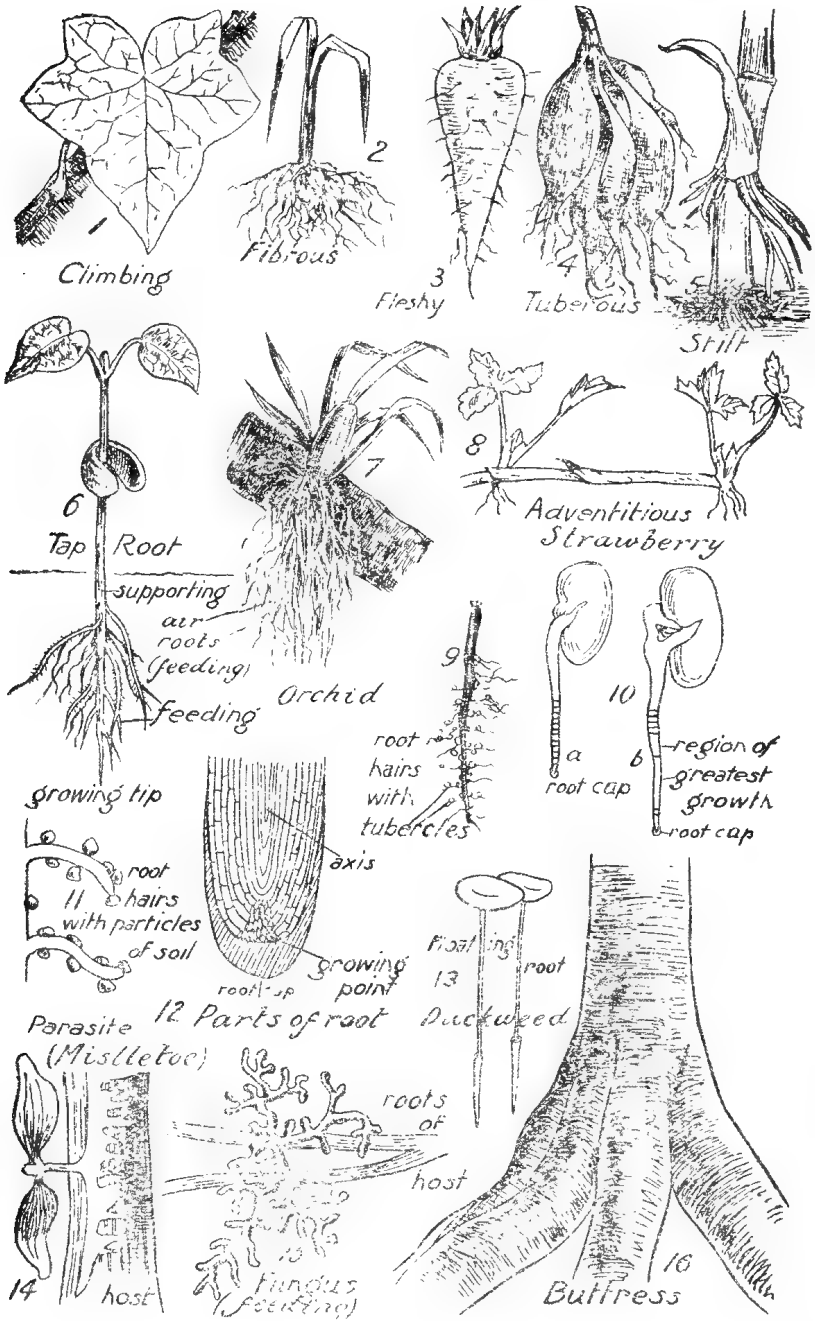 Climbing
2
Fibrous
3
Fleshy
4
Tuberous
5
Stilt
6
Tap Root
supporting
feeding
growing tip
7
air
roots
(feeding)
Orchid
8
Adventitious
Strawberry
9
root
hairs
with
tubercles
10
a
root cap
b
region of
greatest
growth
root cap
11
root
hairs
with particles
of soil
axis
growing
point
12 Parts of root
Floating
root
13
Duckweed
Parasite
(Mistletoe)
14
host
roots
of
host
Fungus
(feeding)
16
Buttress